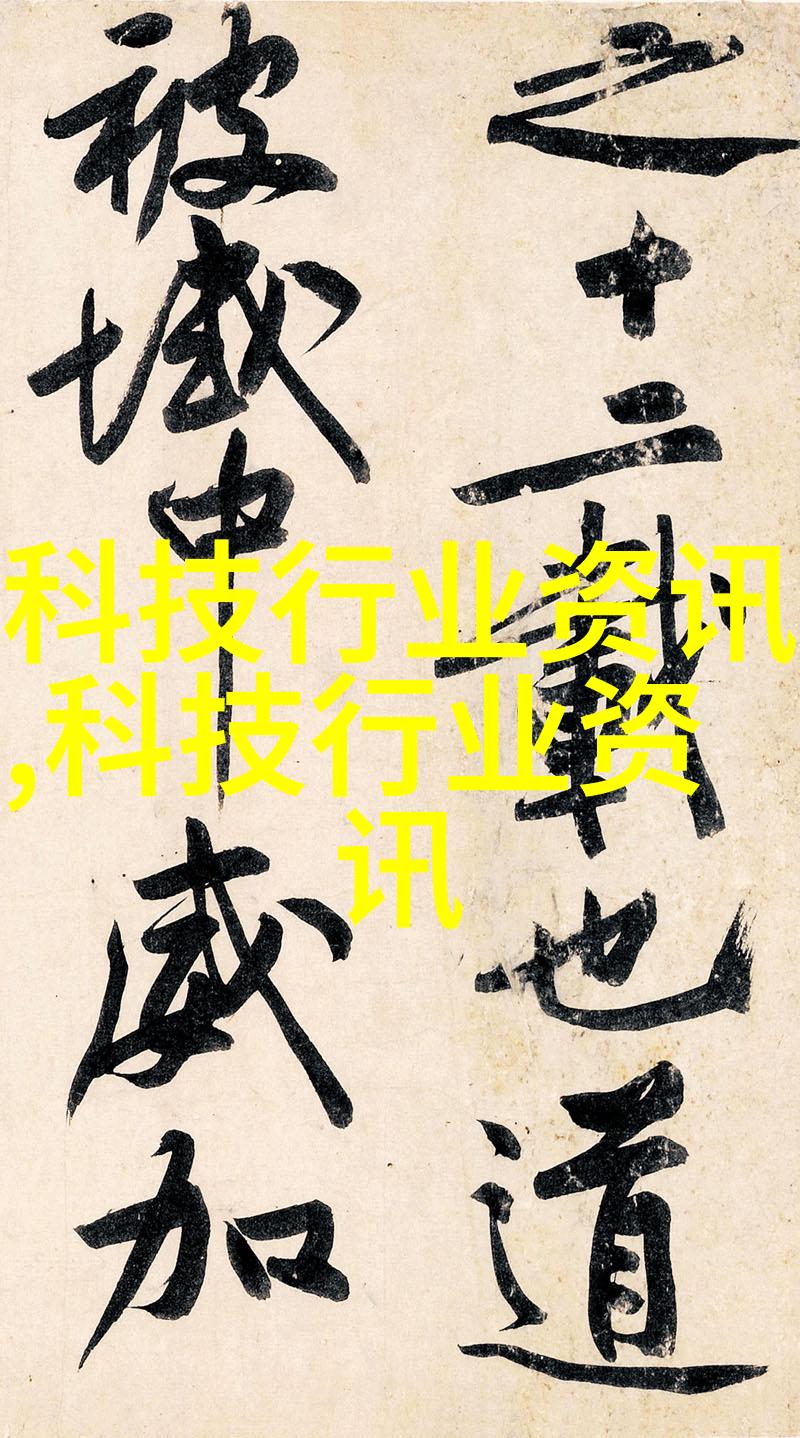 之十二載也道
被域中威加
科技行业资讯
,科技行业资
讯